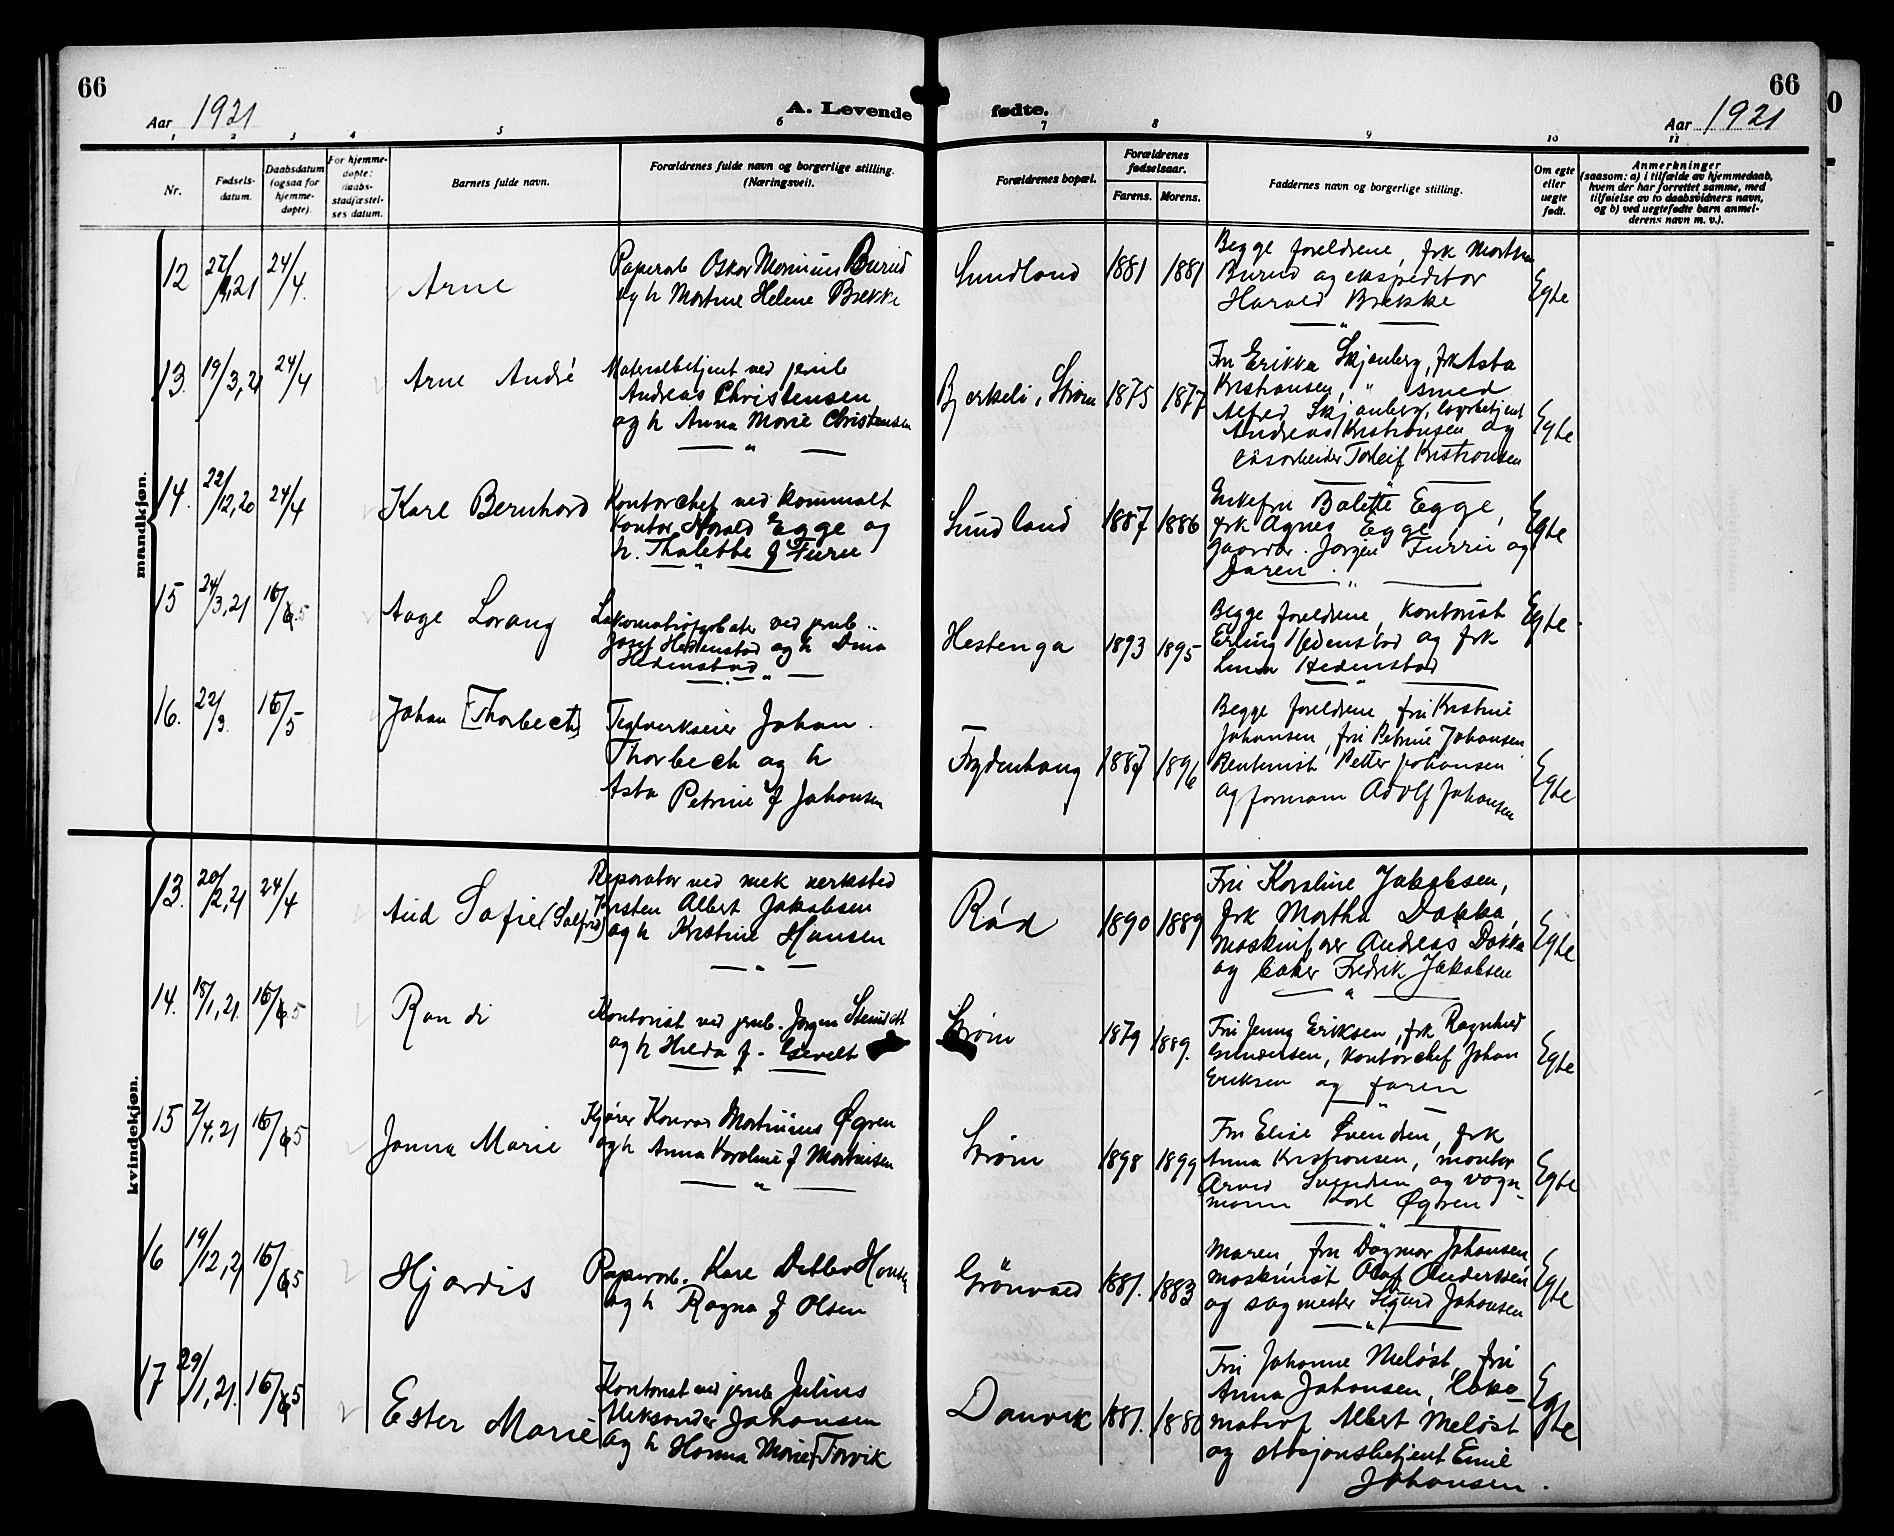 66
Aar 1921
A. Levende
fødte.
66
Aar 1921
1 2 3 4 5 6 7 8 9 10 11
Nr.
Fødsels-
datum.
Daabsdatum
(ogsaa for
hjemme-
døpte).
For hjemme-
døpte:
daabs-
stadfæstel-
ses datum.
Barnets fulde navn.
Forældrenes fulde navn og borgerlige stilling.
(Næringsvei).
Forældrenes bopæl.
Forældrenes
fødselsaar.
Farens. Morens.
Faddernes navn og borgerlige stilling.
Om egte
eller
uegte
født.
Anmerkninger
(saasom: a) i tilfælde av hjemmedaab,
hvem der har forrettet samme, med
tilføielse av to daabsvidners navn,
og b) ved uegtefødte barn anmel-
derens navn m. v.).
mandkjøn.
12
24/4.
Arne
Paperarb Oskar Marinius Burud
og h Martine Helene Brekke
Sundland
1881 1881
Begge foreldrene, frk Martha
Burud og ekspeditør
Harald Brekke
Egte
13.
19/3, 21
24/4
Arne André
Materialbetjent ved jernb
Andreas Christensen
og h Anna Marie Christensen
Bjerkeli, Strøm
1875 1877
Fru Erikka Skjønberg, frk Asta
Kristiansen, " smed
Alfred Skjønberg, lagerbetjent
Andreas Kristiansen og
Torleif Kristiansen
Egte
14.
22/12, 20
24/4
Kare Bernhard
Kontorchef ved kommunalt
kontor Harald Egge og
h. Thalette f Furu
Sundland
1887 1886
Enkefru Balette Egge,
frk Agnes Egge
gaardbr. Jørgen Furru og
Faren.
Egte
15
24/3, 21
16/5
Aage Lorang
Lokomotivpudser ved jernb..
Josef Hedenstad og h Dina
Hedenstad
Hestenga
1893 1895
Begge foreldrene, kontorist
Erling Hedenstad og frk
Hedenstad
Egte
16.
22/3.
16/5
Johan [Thorbech]
Teglverkseier Johan
Thorbech og h
Asta Petrine f Johansen
Frydenhaug
1887 1896
Begge foreldrene, fru Kristine
Johansen, fru Petrine Johansen
Rentenist Petter Johansen
og formann Adolf Johansen
Egte
kvindekjøn.
13.
20/2, 21
24/4
Aud Sofie (Salfrid)
Reparatør ved mek verksted
Torsten Albert Jakobsen
og h Kristine Hansen
Rød
1890 1889
Fru Karoline Jakobsen,
frk Martha Dokka,
maskinfører Andreas Dokka
og baker Fredrik Jakobsen
Egte
14.
18/1, 21.
16/5
Randi
Kontorist ved jernb. Jørgen
og h Hilda f.
Strøm
1879 1889.
Fru Jenny Eriksen, frk Ragnhild
Gundersen, kontorchef Johan
Eriksen og faren
Egte
15
2/4, 21
16/5
Janna Marie
Kjører Konrad Martinius Øgren
og h Anna Karoline f Martinsen
Strøm
1898 1899
Fru Elise Svendsen, frk
Anna Kristiansen, montør
Arved Svendsen og vogn-
mann Karl Øgren
Egte
16
19/12, 2
16/5
Hjørdis
Paperarb. Kare Detlev Hansen
og h Ragna f Olsen
Grönvold
1881. 1883
Maren, fru Dagmar Johansen
maskinist Olaf Andersen
og sagmester Sigurd Johansen
Egte
17
29/1, 21.
16/5
Ester Marie
Kontorist ved jernb Julius
Aleksander Johansen
og h Hanna Marie f Torvik
Danvik
1881. 1880
Fru Johanne Meløst, fru
Anna Johansen, loko-
motivf Albert Meløst
og stasjonsbetjent Emil
Johansen.
Egte